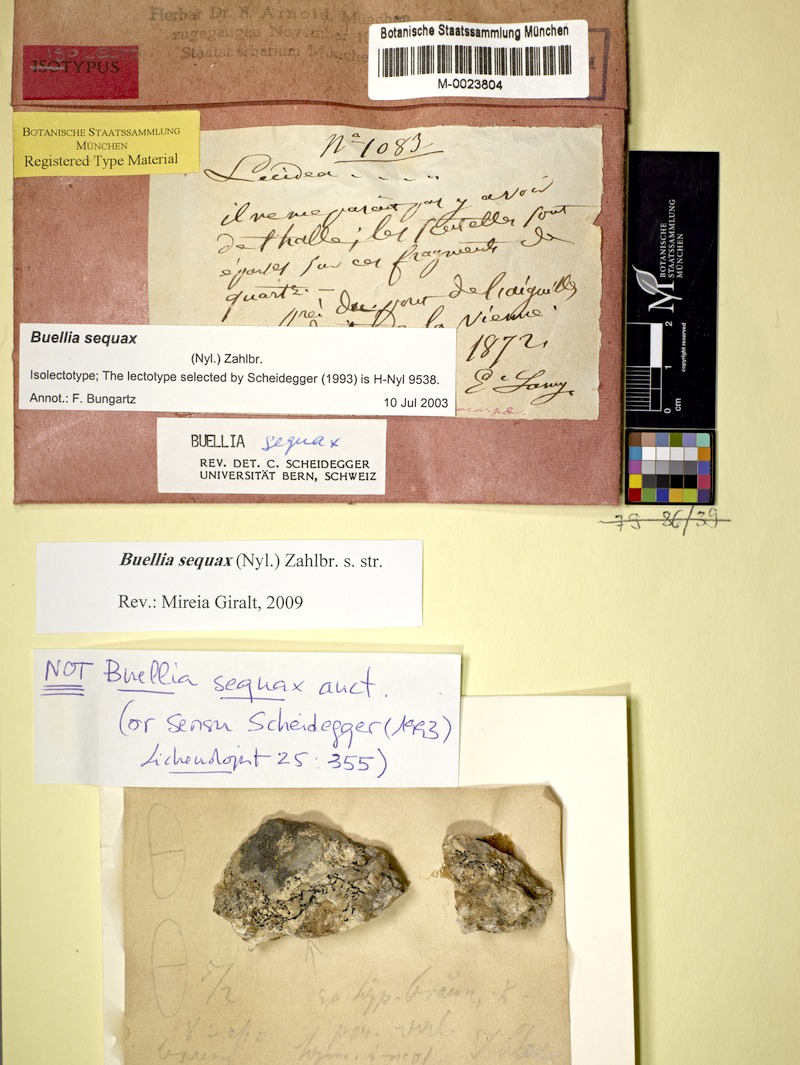 Herbar Dr. F. Arnold, München
zugegangen November
Staatsherbarium München
ISOTYPUS
Botanische Staatssammlung München
M-0023804
BOTANISCHE STAATSSAMMLUNG
MÜNCHEN
Registered Type Material
Nº 1083
Lecidea . . . .
il ne me parait pas y avoir
de thalle; les scutelles sont
éparses sur ces fragments de
quartz. —
près du pont de l'aiguille
de la Vienne
1872.
Ed. Lamy
Buellia sequax
(Nyl.) Zahlbr.
Isolectotype; The lectotype selected by Scheidegger (1993) is H-Nyl 9538.
Annot.: F. Bungartz 10 Jul 2003
BUELLIA sequax
REV. DET. C. SCHEIDEGGER
UNIVERSITÄT BERN, SCHWEIZ
BOTANISCHE
STAATSSAMMLUNG
MÜNCHEN
copyright reserved
0 1 2
cm
79 86/39
Buellia sequax (Nyl.) Zahlbr. s. str.
Rev.: Mireia Giralt, 2009
NOT Buellia sequax auct.
(or sensu Scheidegger (1993)
Lichenologist 25: 355)